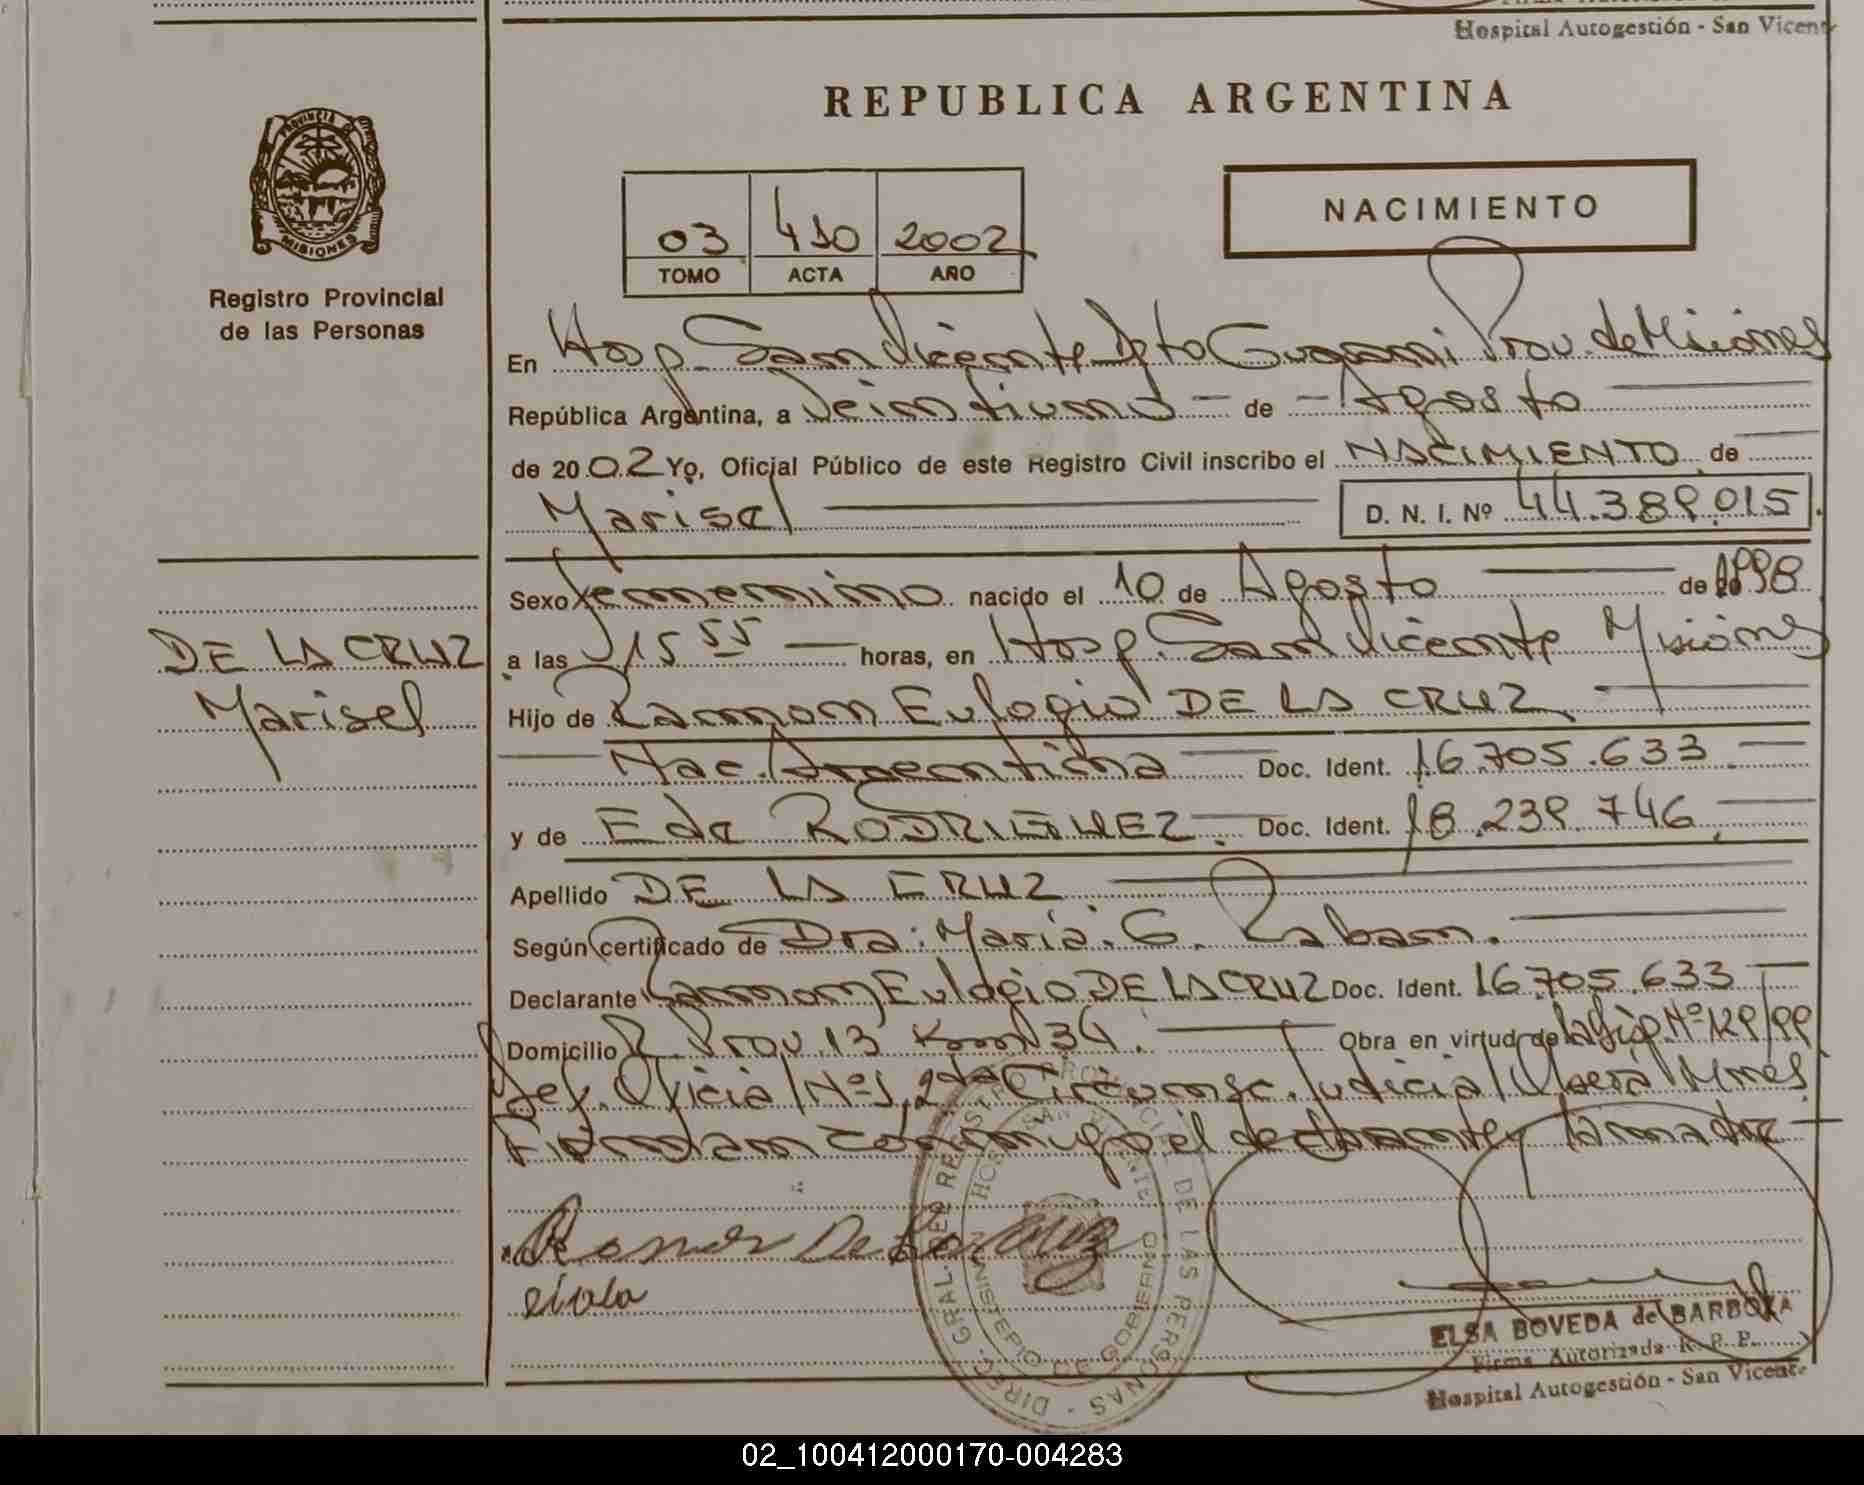 Hospital Autogestión - San Vicente
REPUBLICA ARGENTINA
PROVINCIA DE
MISIONES
Registro Provincial
de las Personas
NACIMIENTO
03 410 2002
TOMO ACTA AÑO
En Hosp. San Vicente Dpto Guaraní Prov. de Misiones
República Argentina, a Veintiuno - de - Agosto
de 2002 Yo, Oficial Público de este Registro Civil inscribo el NACIMIENTO de
Marisel D. N. I. Nº 44.389.015
Sexo femenino nacido el 10 de Agosto de 1998
DE LA CRUZ
Marisel
a las 15 55 horas, en Hosp. San Vicente Misiones
Hijo de Ramon Eulogio DE LA CRUZ
Nac. Argentina Doc. Ident. 16.705.633
y de Eda RODRIGUEZ Doc. Ident. 18.239.746
Apellido DE LA CRUZ
Según certificado de Dra: Maria. G. Raban.
Declarante Ramon Eulogio DE LA CRUZ Doc. Ident. 16.705.633
Domicilio R. Prov. 13 Km 34. Obra en virtud de la Nº 129/99
Def. Oficial Nº 1, 2da Circunsc. Judicial Oberá Mnes
Firman conmigo el declarante y la madre
Ramon De la Cruz
DIREC. GRAL. DEL REGISTRO PROVINCIAL DE LAS PERSONAS
HOSP. SAN VICENTE
MINISTERIO DE GOBIERNO
ELSA BOVEDA de BARBOZA
Firma Autorizada R. P. P.
Hospital Autogestión - San Vicente
02_100412000170-004283